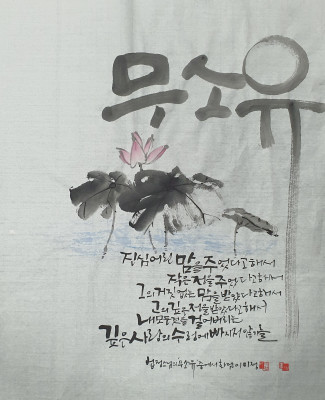 무소유
진심어린 맘을 주었다고 해서
작은 정을 주었다고 해서
그의 거짓 없는 맘을 받았다고 해서
그의 깊은 정을 받았다고 해서
내 모든 것을 걸어버리는
깊은 사랑의 수렁에 빠지지 않기를
법정스님의 무소유 중에서